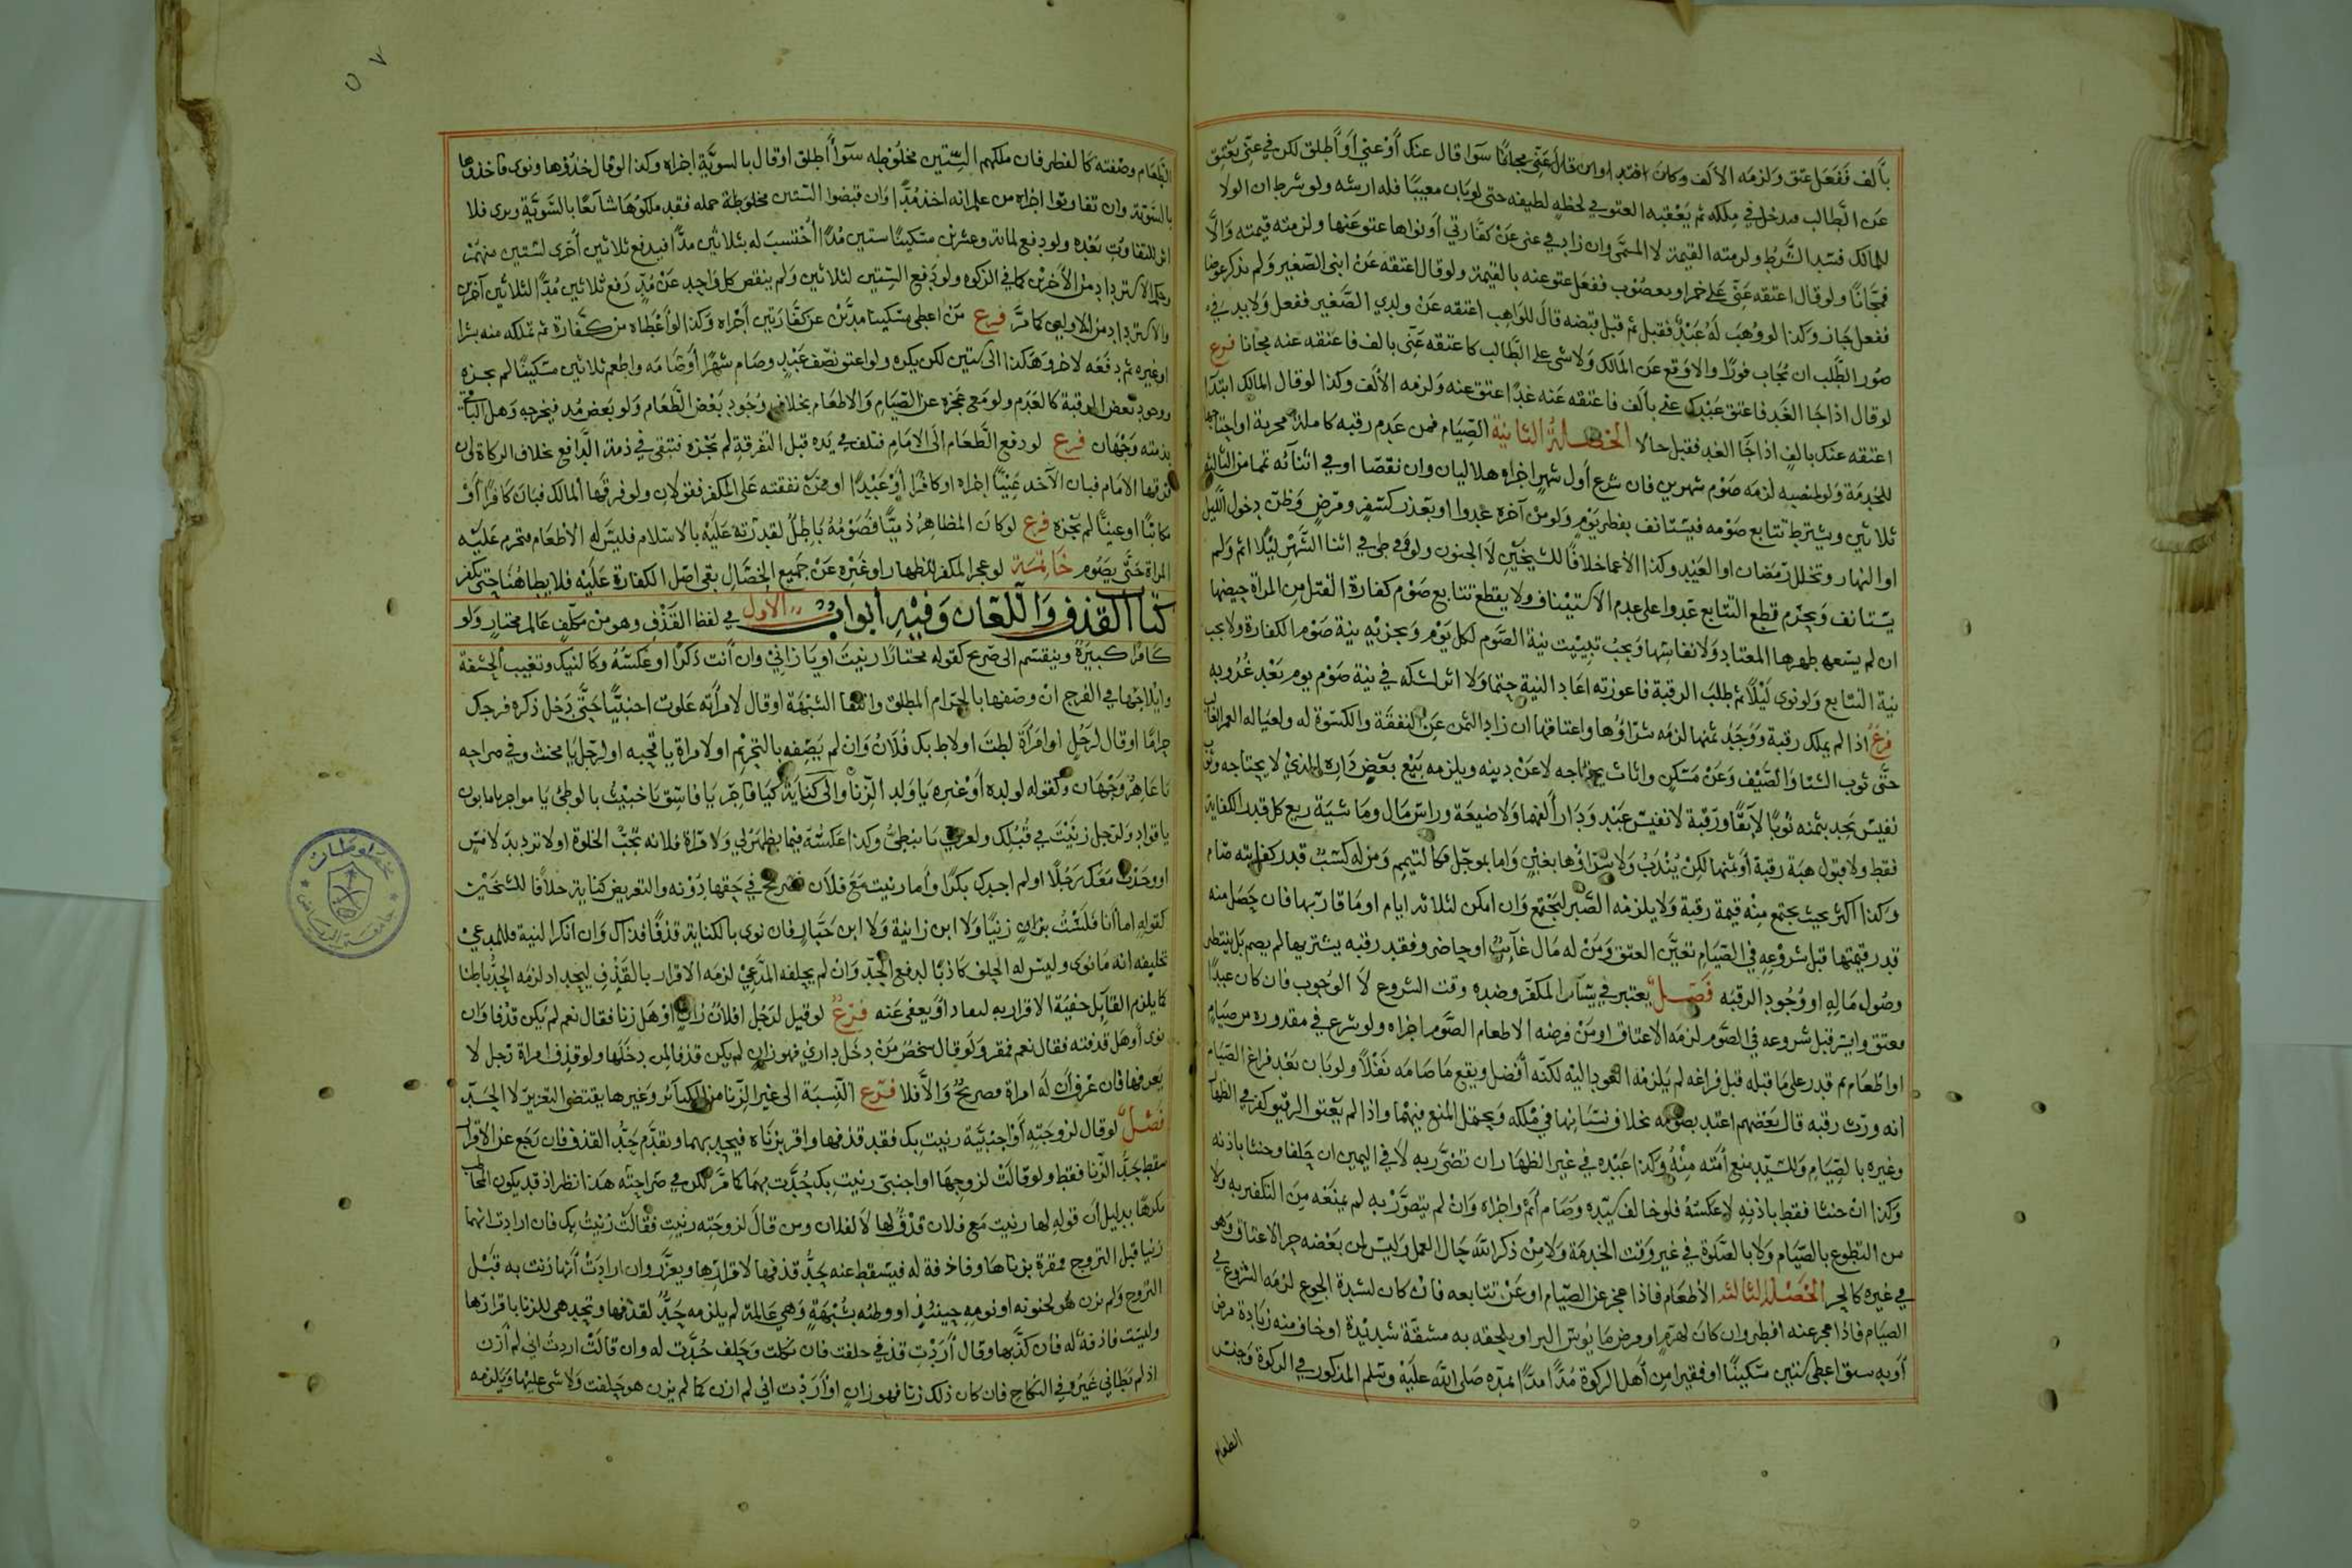 بألف ففعل عتق ولزمه الألف وكان افتدا وان قال عني مجانا سوا قال عنك أو عني أو أطلق لكن في عني يعتق
عن الطالب فيدخل في ملكه ثم يعقبه العتق في لحظة لطيفة حتى لو بان معيبا فله ارشه ولو شرط ان الولا
للمالك فسد الشرط ولزمته القيمة لا المسمى وان زاد في عني عن كفارتي أو نواها عتق عنها ولزمته قيمته والا
فمجانا ولو قال اعتقه عني على خمر او مغصوب ففعل عتق عنه بالقيمة ولو قال اعتقه عن ابني الصغير ولم يذكر عوضا
ففعل جاز وكذا لو وهب له عبد فقبل ثم قبل قبضه قال للواهب اعتقه عن ولدي الصغير ففعل ولا بد في
صور الطلب ان يجاب فورا والا وقع عن المالك ولا شى على الطالب كاعتقه عني بالف فاعتقه عنه مجانا فرع
لو قال اذا جا الغد فاعتق عبدك عني بألف فاعتقه عنه غدا اعتق عنه ولزمه الألف وكذا لو قال المالك ابتدا
اعتقه عنك بالف اذا جا الغد فقبل حالا الخصلة الثانية الصيام فمن عدم رقبة كاملة مجزية او احتاجها
للخدمة ولو لمنصبه لزمه صوم شهرين فان شرع أول شهر اجزاه هلاليان وان نقصا او في اثنائه تمما من الثالث
ثلاثين ويشترط تتابع صومه فيستانف بفطر يوم ولو من آخره عدوا او بعذر كسفر ومرض وظن دخول الليل
او النهار وتخلل رمضان او العيد وكذا الأغما خلافا للشيخين لا الجنون ولو وطى في اثنا الشهر ليلا اثم ولم
يستانف ويحرم قطع التتابع عدوا على عدم الاستيناف ولا يقطع تتابع صوم كفارة القتل من المراة حيضها
ان لم يسعه طهرها المعتاد ولا نفاسها ويجب تبييت نية الصوم لكل يوم ويجزيه نية صوم الكفارة ولا يجب
نية التتابع ولو نوى ليلا ثم طلب الرقبة فاعوزته اعاد النية حتما ولا اثر لشكه في نية صوم يوم بعد غروبه
فرع اذا لم يملك رقبة ووجد ثمنها لزمه شراؤها واعتاقها ان زاد الثمن عن النفقة والكسوة له ولعياله العمر الغالب
حتى ثوب الشتا والصيف وعن مسكن واثاث يحتاجه لا عن دينه ويلزمه بيع بعض داره الذي لا يحتاجه وثوب
نفيس يجد بثمنه ثوبا لائقا ورقبة لا نفيس عبد ودار ألفهما ولا ضيعة وراس مال وماشية ريع كل قدر الكفاية
فقط ولا قبول هبة رقبة أو ثمنها لكن يندب ولا شراؤها بغبن واما بموجل فكالتيمم ومن له كسب قدر كفايته صام
وكذا اكثر بحيث يجتمع منه قيمة رقبة ولا يلزمه الصبر لتجتمع وان امكن لثلاثة ايام او ما قاربها فان حصل منه
قدر قيمتها قبل شروعه في الصيام تعين العتق ومن له مال غائب او حاضر وفقد رقبة يشتريها لم يصم بل ينتظر
وصول ماله او وجود الرقبه فصل يعتبر في يسار المكفر وضده وقت الشروع لا الوجوب فان كان عبدا
معتق وايسر قبل شروعه في الصوم لزمه الاعتاق او من فرضه الاطعام الصوم اجزاه ولو شرع في مقدوره من صيام
او اطعام ثم قدر على ما قبله قبل فراغه لم يلزمه العود اليه لكنه أفضل ويقع ما صامه نفلا ولو بان بعد فراغ الصيام
انه ورث رقبه قال بعضهم اعتد بصومه بخلاف نسيانها في ملكه ويحتمل المنع فيهما واذا لم يعتق الرقيق كفر في الظهار
وغيره بالصيام وللسيد منع أمته منه وكذا عبده في غير الظهار ان تضرر به لا في اليمين ان حلفا وحنثا باذنه
وكذا ان حنثا فقط باذنه لا عكسه فلو خالف سيده وصام أثم واجزاه وان لم يتضرر به لم يمنعه من التكفير به ولا
من التطوع بالصيام ولا بالصلوة في غير وقت الخدمة ولا من ذكر الله حال العمل وليس لمن بعضه حر الاعتاق وهو
في غيره كالحر الخصلة الثالثه الأطعام فاذا عجز عن الصيام او عن تتابعه فان كان لشدة الجوع لزمه الشروع في
الصيام فاذا عجز عنه افطر وان كان لهرم او مرض ما يوس البر او يلحقه به مشقة شديدة او خاف منه زيادة مرض
أو به سبق اعطى ستين مسكينا او فقيرا من أهل الزكوة مدا مدا بمده صلى الله عليه وسلم المذكور في الزكوة وجنس
الطعام
الطعام وصفته كالفطر فان ملكهم الستين مخلوطه سوأ أطلق او قال بالسوية اجزاه وكذا لو قال خذوها ونوى فاخذوها
بالسوية وان تفاوتوا اجزاه من علم انه اخذ مدا وان قبضوا الستين مخلوطة جمله فقد ملكوها شائعا بالسوية وبرى فلا
اثر للتفاوت بعده ولو دفع لماية وعشرين مسكينا ستين مدا احتسب له بثلاثين مدا فيدفع ثلاثين أخرى لستين منهم
وحكم الاسترداد من الأخرين كما في الزكوه ولو دفع الستين لثلاثين ولم ينقص كل واحد عن مد دفع ثلاثين مدا لثلاثين آخرين
والاسترداد من الاولين كما مر فرع من اعطى مسكينا مدين عن كفارتين أجزاه وكذا لو أعطاه من كفارة ثم تملكه منه بشرا
او غيره ثم دفعه لاخر وهكذا الى ستين لكن يكره ولو اعتق نصف عبد وصام شهرا أو صامه واطعم ثلاثين مسكينا لم يجزه
ووجود بعض الرقبة كالعدم ولو مع عجزه عن الصيام والاطعام بخلاف وجود بعض الطعام ولو بعض مد فيخرجه وهل الباقي
بذمته وجهان فرع لو دفع الطعام الى الامام فتلف في يده قبل التفرقة لم تجزه فتبقى في ذمة الدافع بخلاف الزكاة ولو
فرقها الامام فبان الآخذ غنيا اجزاه او كافرا أو عبدا او ممن نفقته على المكفر فقولان ولو فرقها المالك فبان كافرا أو
مكاتبا او غنيا لم تجزه فرع لو كان المظاهر ذميا فصومه باطل لقدرته عليه بالاسلام فليس له الاطعام فتحرم عليه
المراة حتى يصوم خاتمة لو عجز المكفر للظهار او غيره عن جميع الخصال بقى اصل الكفارة عليه فلا يطا هنا حتى يكفر
كتاب القذف واللعان وفيه أبواب الأول في لفظ القذف وهو من مكلف عالم مختار ولو
كافرا كبيرة وينقسم الى صريح كقوله مختارا زنيت او يا زاني وان أنت ذكرا او عكسه وكالنيك وتغييب الحشفة
وايلاجها في الفرج ان وصفهما بالحرام المطلق وانتفا الشبهة او قال لامرأته علوت اجنبيا حتى دخل ذكره فرجك
حراما او قال لرجل او امرأة لطت او لاط بك فلان وان لم يصفه بالتحريم او لامراة يا قحبه او لرجل يا مخنث وفي صراحه
يا عاهر وجهان وكقوله لولده أو غيره يا ولد الزنا والى كناية كيا فاجر يا فاسق يا خبيث يا لوطي يا مواجر يا مابون
يا قواد ولرجل زنيت في قبلك ولعربي يا نبطي وكذا عكسه فيما يظهر لي ولامراة فلانه تحب الخلوة او لا ترد يد لامس
او وجدت معك رجلا او لم اجدك بكرا وأما زنيت مع فلان فصريح في حقها دونه والتعريض كناية خلافا للشيخين
كقوله اما أنا فلست بزان زنيا ولا ابن زانية ولا ابن خباز فان نوى بالكناية قذفا فذاك وان انكر النية فللمدعي
تحليفه انه ما نوى وليس له الحلف كاذبا لدفع الحد وان لم يحلفه المدعي لزمه الاقرار بالقذف ليحد اذ لزمه الحد باطنا
كما يلزم القاتل خفية الاقرار به ليقاد أو يعفى عنه فرع لو قيل لرجل افلان زان أو هل زنا فقال نعم لم يكن قذفا وان
نوى أو هل قذفته فقال نعم فمقر ولو قال شخص من دخل داري فهو زان لم يكن قذفا لمن دخلها ولو قذف امراة رجل لا
يعرفها فان عرف أن له امراة فصريح والا فلا فرع النسبة الى غير الزنا من الكبائر وغيرها يقتضى التعزير لا الحد
فصل لو قال لزوجته أو اجنبية زنيت بك فقد قذفها واقر بزناه فيحد بهما ويقدم حد القذف فان رجع عن الاقرار
سقط حد الزنا فقط ولو قالت لزوجها او اجنبي زنيت بك حدت بهما كما مر لكن في صراحته هذا نظر اذ قد يكون المخاطب
مكرها بدليل أن قوله لها زنيت مع فلان قذف لها لا لفلان ومن قال لزوجته زنيت فقالت زنيت بك فان ارادت انهما
زنيا قبل التزوج فمقرة بزناها وقاذفة له فيسقط عنه حد قذفها لاقرارها ويعزر وان ارادت أنها زنت به قبل
التزوج ولم يزن هو لجنونه او نومه حينئذ او وطئه بشبهة وهي عالمة لم يلزمه حد لقذفها وتحد هي للزنا باقرارها
وليست قاذفة له فان كذبها وقال أردت قذفي حلفت فان نكلت وحلف حدت له وان قالت اردت اني لم أزن
اذ لم يطاني غيره في النكاح فان كان ذلك زنا فهو زان او أردت اني لم ازن كما لم يزن هو حلفت ولا شى عليها ويلزمه